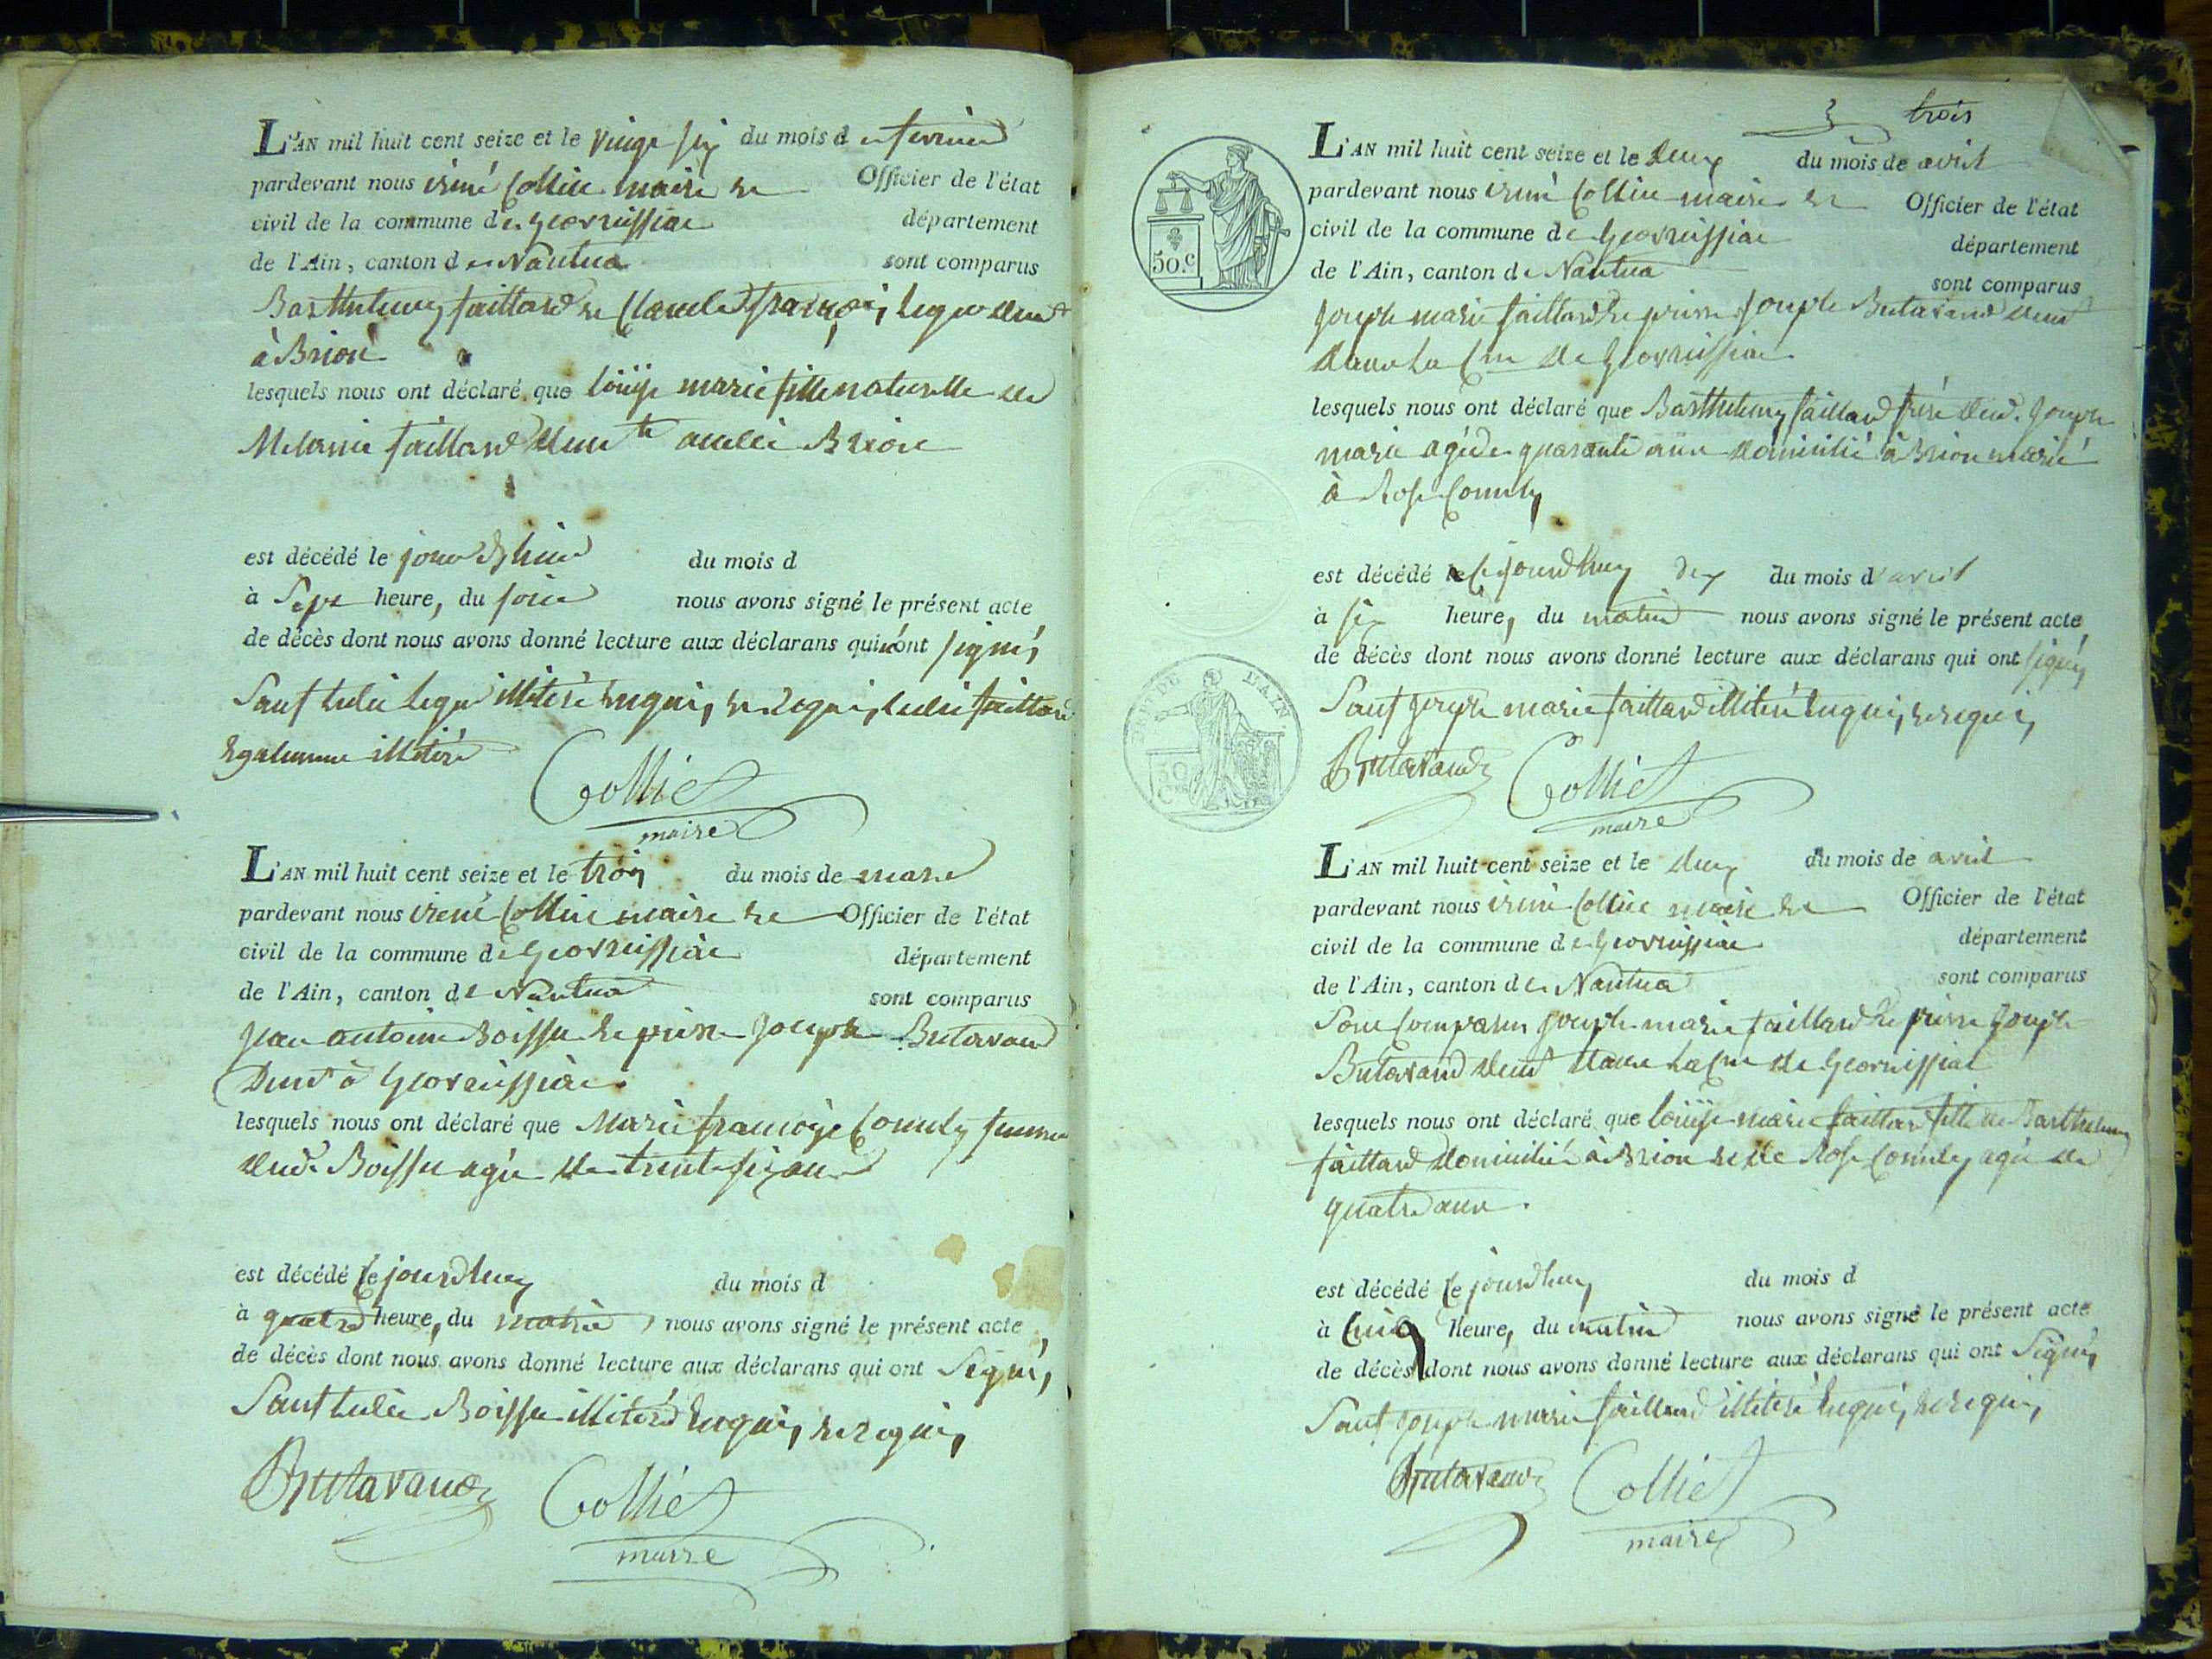 L'AN mil huit cent seize et le vingt six du mois de fevrier
pardevant nous irené Colliet maire et Officier de l'état
civil de la commune de Geovreissiat département
de l'Ain, canton de Nantua sont comparus
Barthelemy faillard et Claude françois
à Brion
lesquels nous ont déclaré que loüise marie fille naturelle de
Melanie faillard Brion
est décédé le jour du mois d
à Sept heure, du soir nous avons signé le présent acte
de décès dont nous avons donné lecture aux déclarans qui ont signés
Sauf illiteré enquis et requis faillard
Egalement illiteré
Colliet
maire
L'AN mil huit cent seize et le trois du mois de mars
pardevant nous irené Colliet maire et Officier de l'état
civil de la commune de Geovreissiat département
de l'Ain, canton de Nantua sont comparus
Jean antoine Boissu et pierre Joseph Butavand
Demt à Geovreissiat
lesquels nous ont déclaré que Marie françoise Comuly femme
dud. Boissu agée de trente six ans
est décédé Cejourdhuy du mois d
à quatre heure, du matin nous avons signé le présent acte
de décès dont nous avons donné lecture aux déclarans qui ont Signés
Sauf Boissu illiteré Enquis et requis
Butavand
Colliet
maire
3 trois
50.c
L'AN mil huit cent seize et le deux du mois de avril
pardevant nous irené Colliet maire et Officier de l'état
civil de la commune de Geovreissiat département
de l'Ain, canton de Nantua sont comparus
Joseph marie faillard et pierre Joseph Butavand demt
dans la Cne de Geovreissiat
lesquels nous ont déclaré que Barthelemy faillard frère dud. Joseph
marie agé de quarante ans domicilié à Brion marié
à Rose Comuly
est décédé Cejourdhuy du mois d'avril
à six heure, du matin nous avons signé le présent acte
de décès dont nous avons donné lecture aux déclarans qui ont signés
Sauf Joseph marie faillard illiteré Enquis et requis
DEP. DE L'AIN
50
Butavand
Colliet
maire
L'AN mil huit cent seize et le deux du mois de avril
pardevant nous irené Colliet maire et Officier de l'état
civil de la commune de Geovreissiat département
de l'Ain, canton de Nantua sont comparus
Sont Comparus Joseph marie faillard et pierre Joseph
Butavand demt dans la Cne de Geovreissiat
lesquels nous ont déclaré que loüise marie faillard fille de Barthelemy
faillard domicilié à Brion et de Rose Comuly agée de
quatre ans.
est décédé Cejourdhuy du mois d
à Cinq heure, du matin nous avons signé le présent acte
de décès dont nous avons donné lecture aux déclarans qui ont Signés
Sauf Joseph marie faillard illiteré Enquis et requis
Butavand
Colliet
maire